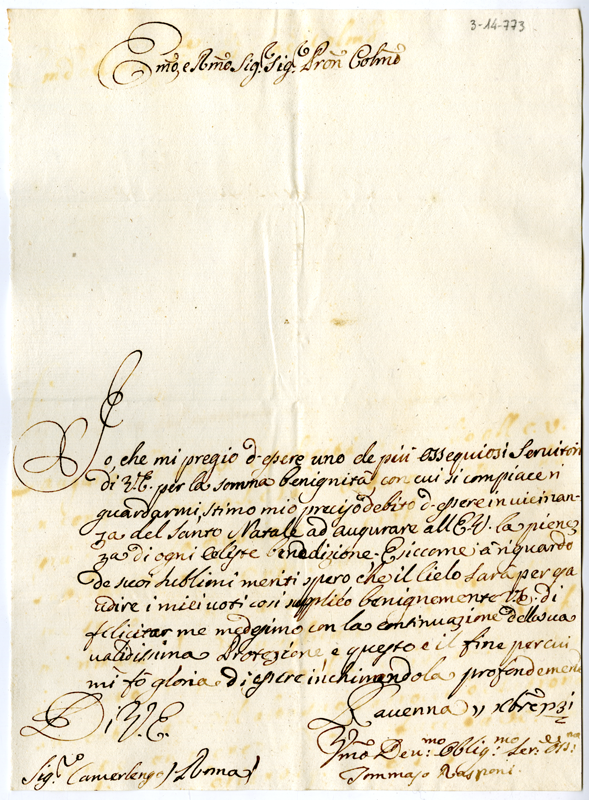 3-14-773
Emo, e Rmo Sigr. Sigr. Pron Colmo
Io, che mi pregio d'essere uno de più ossequiosi Servitori
di V.E. per la somma benignità, con cui si compiace ri
guardarmi, stimo mio preciso debito d'essere in vicinan-
za del Santo Natale ad augurare all'E.V. la pienez
za di ogni Celeste benedizione. E siccome a riguardo
de suoi sublimi meriti spero che il Cielo sarà per ga
udire i miei voti così supplico benignemente V.E. di
felicitar me medesimo con la continuazione della sua
validissima Protezione e questo è il fine per cui
mi fò gloria di essere inchinandola profondemente
Di V.E.
Ravenna 11 xbre
Vmo Deu:mo Oblig:mo Ser:
Sigr. Camerlengo / Roma /
Tommaso Rasponi.